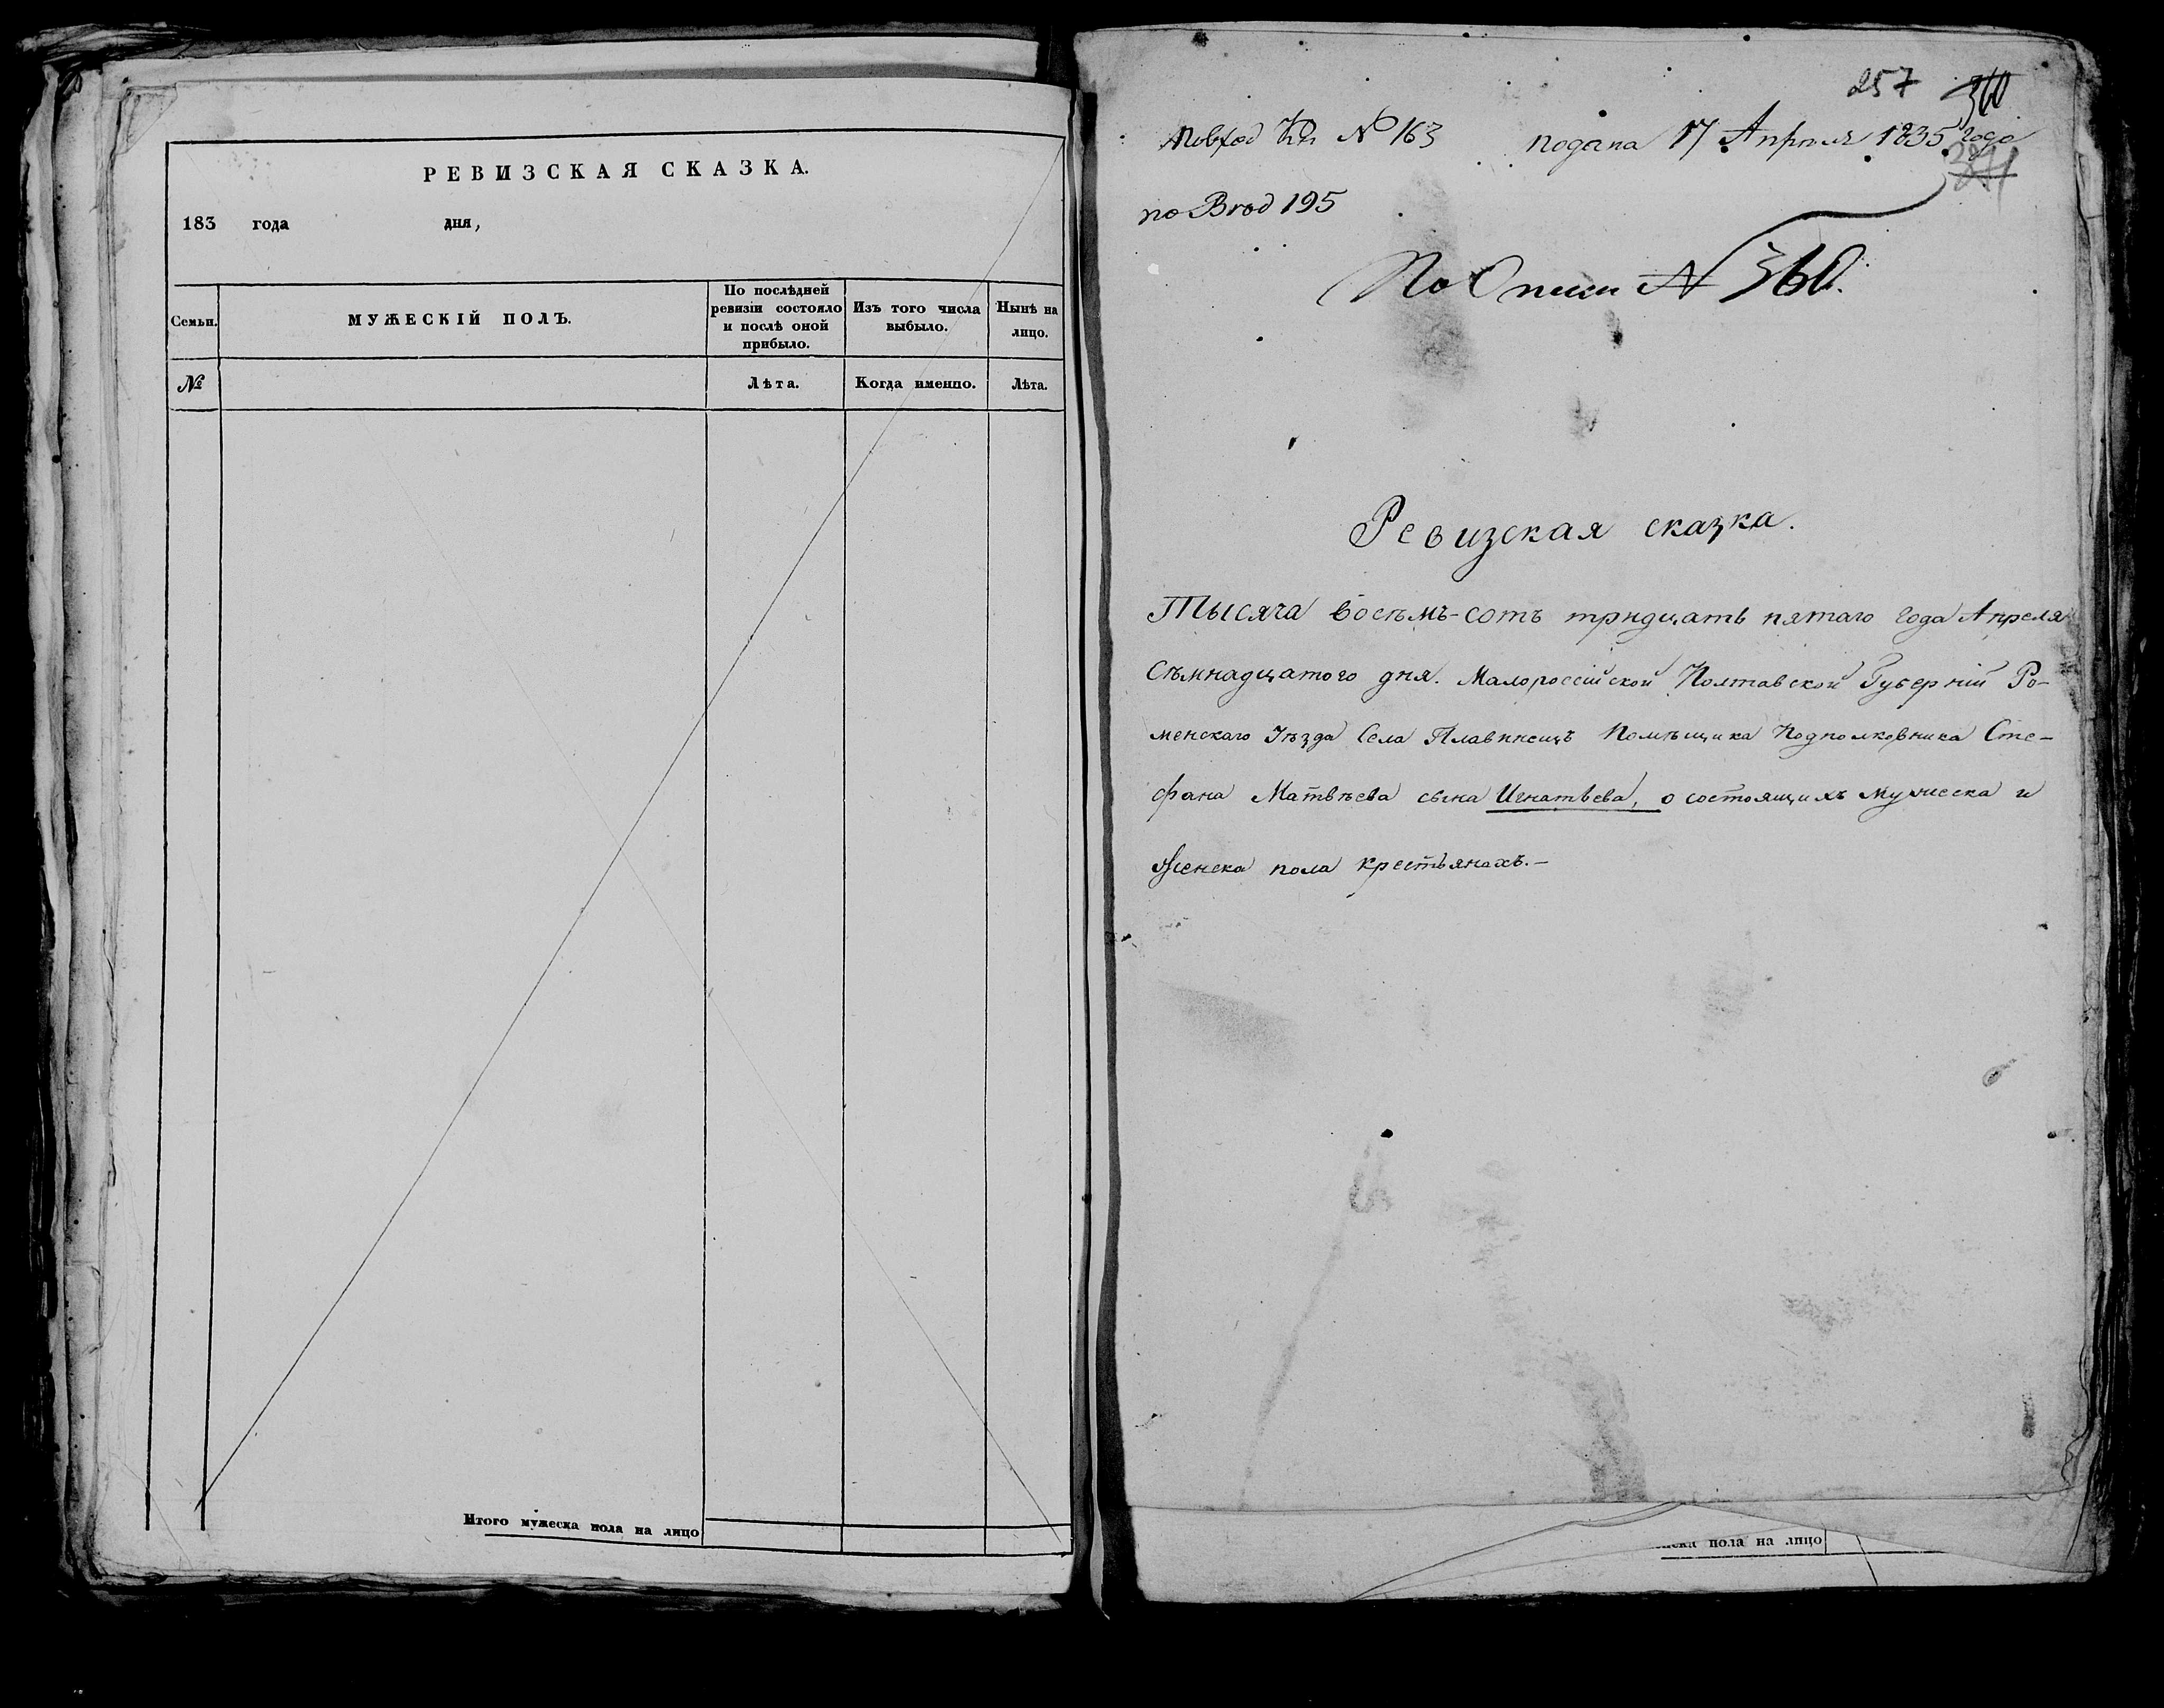 РЕВИЗСКАЯ СКАЗКА.
183 года дня,
Семьи.
МУЖЕСКІЙ ПОЛЪ.
По послѣдней
ревизіи состояло
и послѣ оной
прибыло.
Изъ того числа
выбыло.
Нынѣ на
лицо.
№
Лѣта.
Когда именно.
Лѣта.
Итого мужеска пола на лицо
257 360
№ 163 подана 17 Апреля 1835 года
по Вход 195
По Описи № 360.
Ревизская сказка.
Тысяча восѣмъ-сотъ тридцать пятаго года Апреля
Сѣмнадцатого дня. Малороссійской Полтавской Губерніи Ро-
менскаго Уѣзда Села Плавинищъ Помѣщика Подполковника Сте-
фана Матвѣева сына Игнатьева, о состоящихъ мужеска и
женска пола крестьянахъ.-
пола на лицо